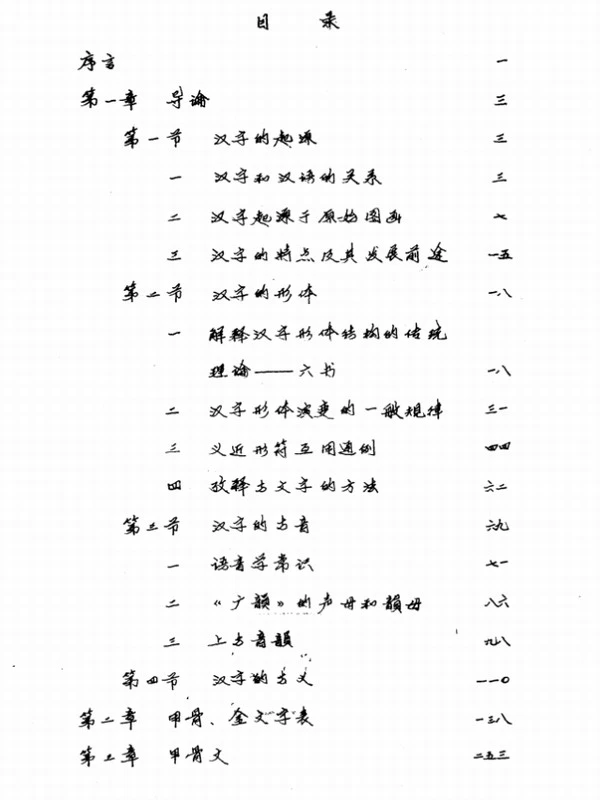 目 录
序言 一
第一章 导论 三
第一节 汉字的起源 三
一 汉字和汉语的关系 三
二 汉字起源于原始图画 七
三 汉字的特点及其发展前途 一五
第二节 汉字的形体 一八
一 解释汉字形体结构的传统
理论——六书 一八
二 汉字形体演变的一般规律 三一
三 义近形符互用通例 四四
四 攷释古文字的方法 六二
第三节 汉字的古音 六九
一 语音学常识 七一
二 《广韻》的声母和韻母 八六
三 上古音韻 九八
第四节 汉字的古义 一一〇
第二章 甲骨、金文字表 一三八
第三章 甲骨文 二五三